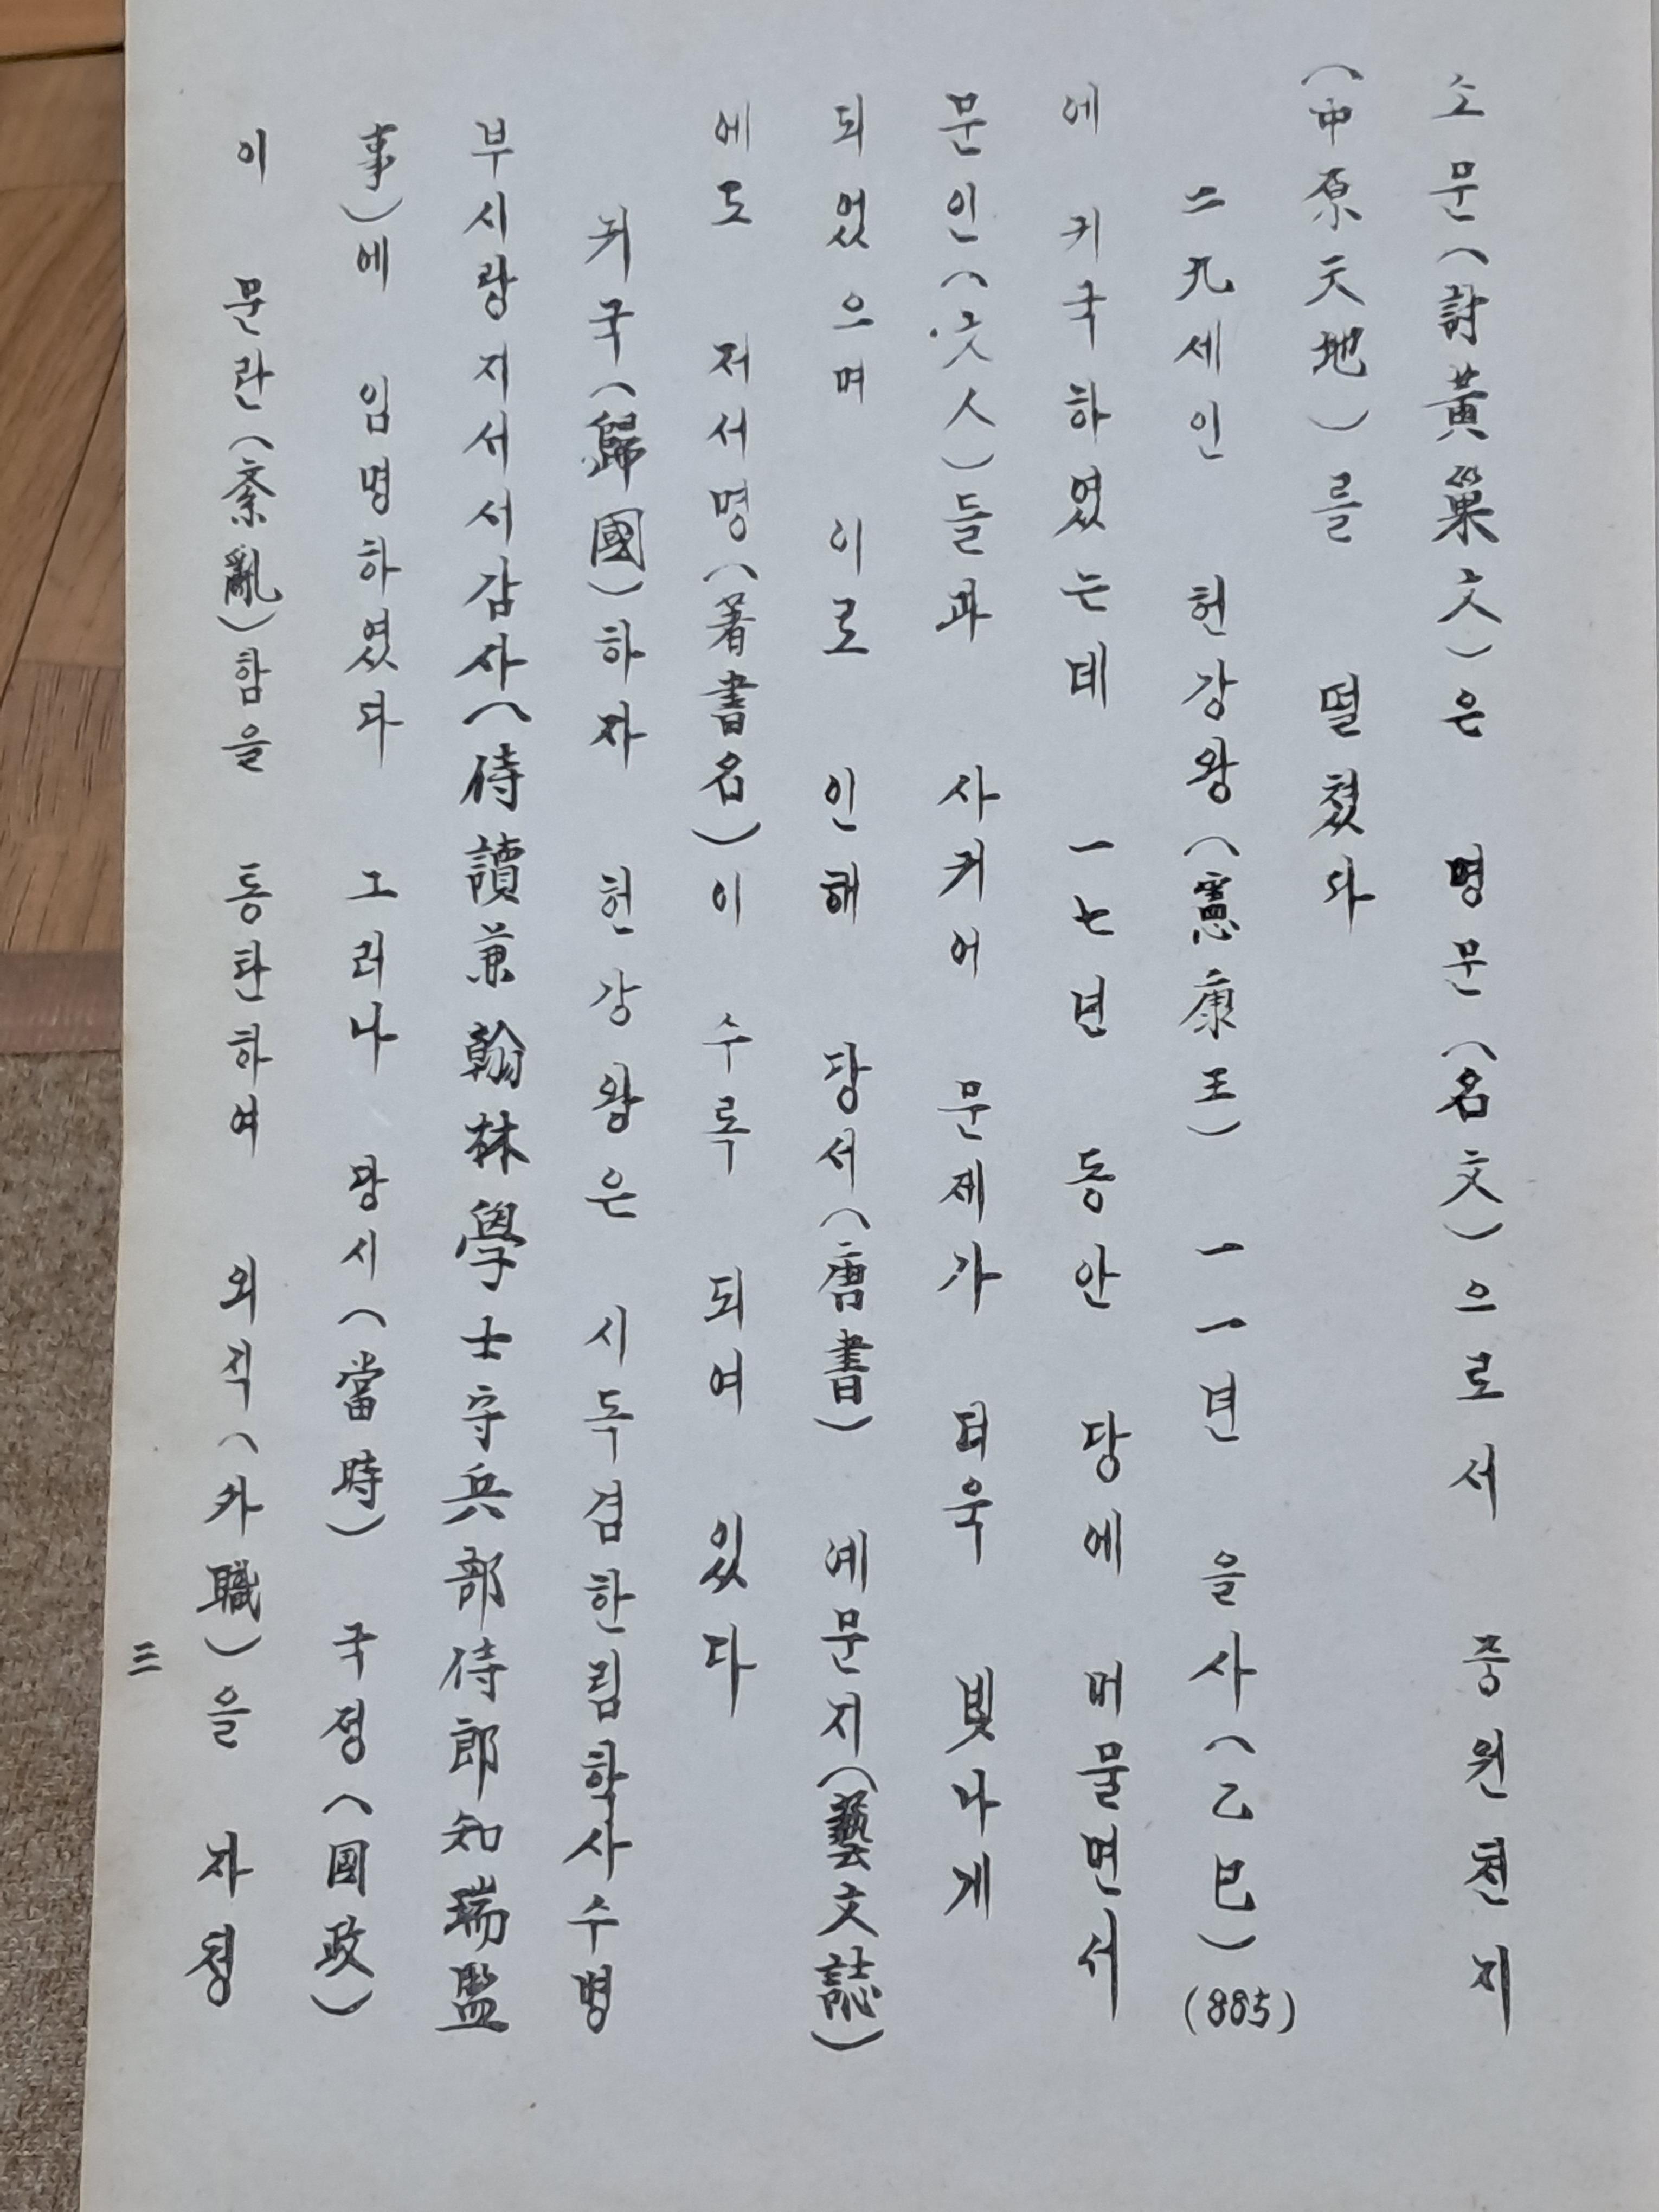 소문(討黃巢文)은 명문(名文)으로서 중원천지
(中原天地)를 떨쳤다
二九세인 헌강왕(憲康王) 一一년 을사(乙巳)(885)
에 귀국하였는데 一七년 동안 당에 머물면서
문인(文人)들과 사귀어 문제가 더욱 빛나게
되었으며 이로 인해 당서(唐書) 예문지(藝文誌)
에도 저서명(著書名)이 수록 되여 있다
귀국(歸國)하자 헌강왕은 시독겸한림학사수병
부시랑지서서감사(侍讀兼翰林學士守兵部侍郎知瑞監
事)에 임명하였다 그러나 당시(當時) 국정(國政)
이 문란(紊亂)함을 통탄하여 외직(外職)을 자청
三